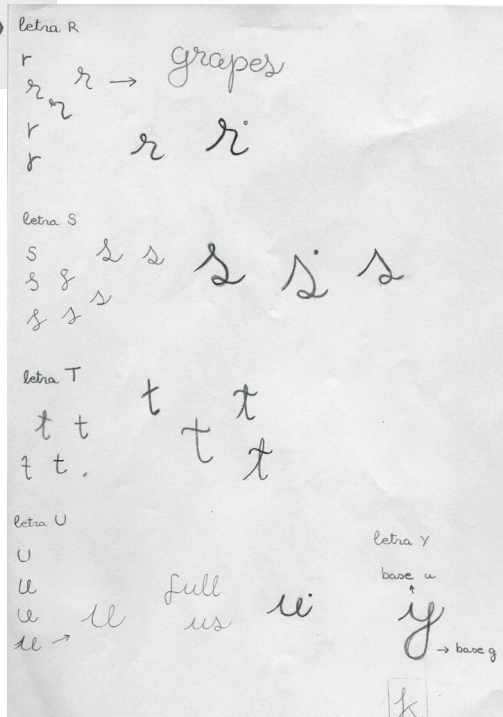 letra R
r
r r → grapes
r
r r r
r
letra S
s s s s s s
s s s
s s
letra T
t t
t t t
t t t
letra U
u
u full
u u us u
u →
letra Y
base u
y
→ base g
k